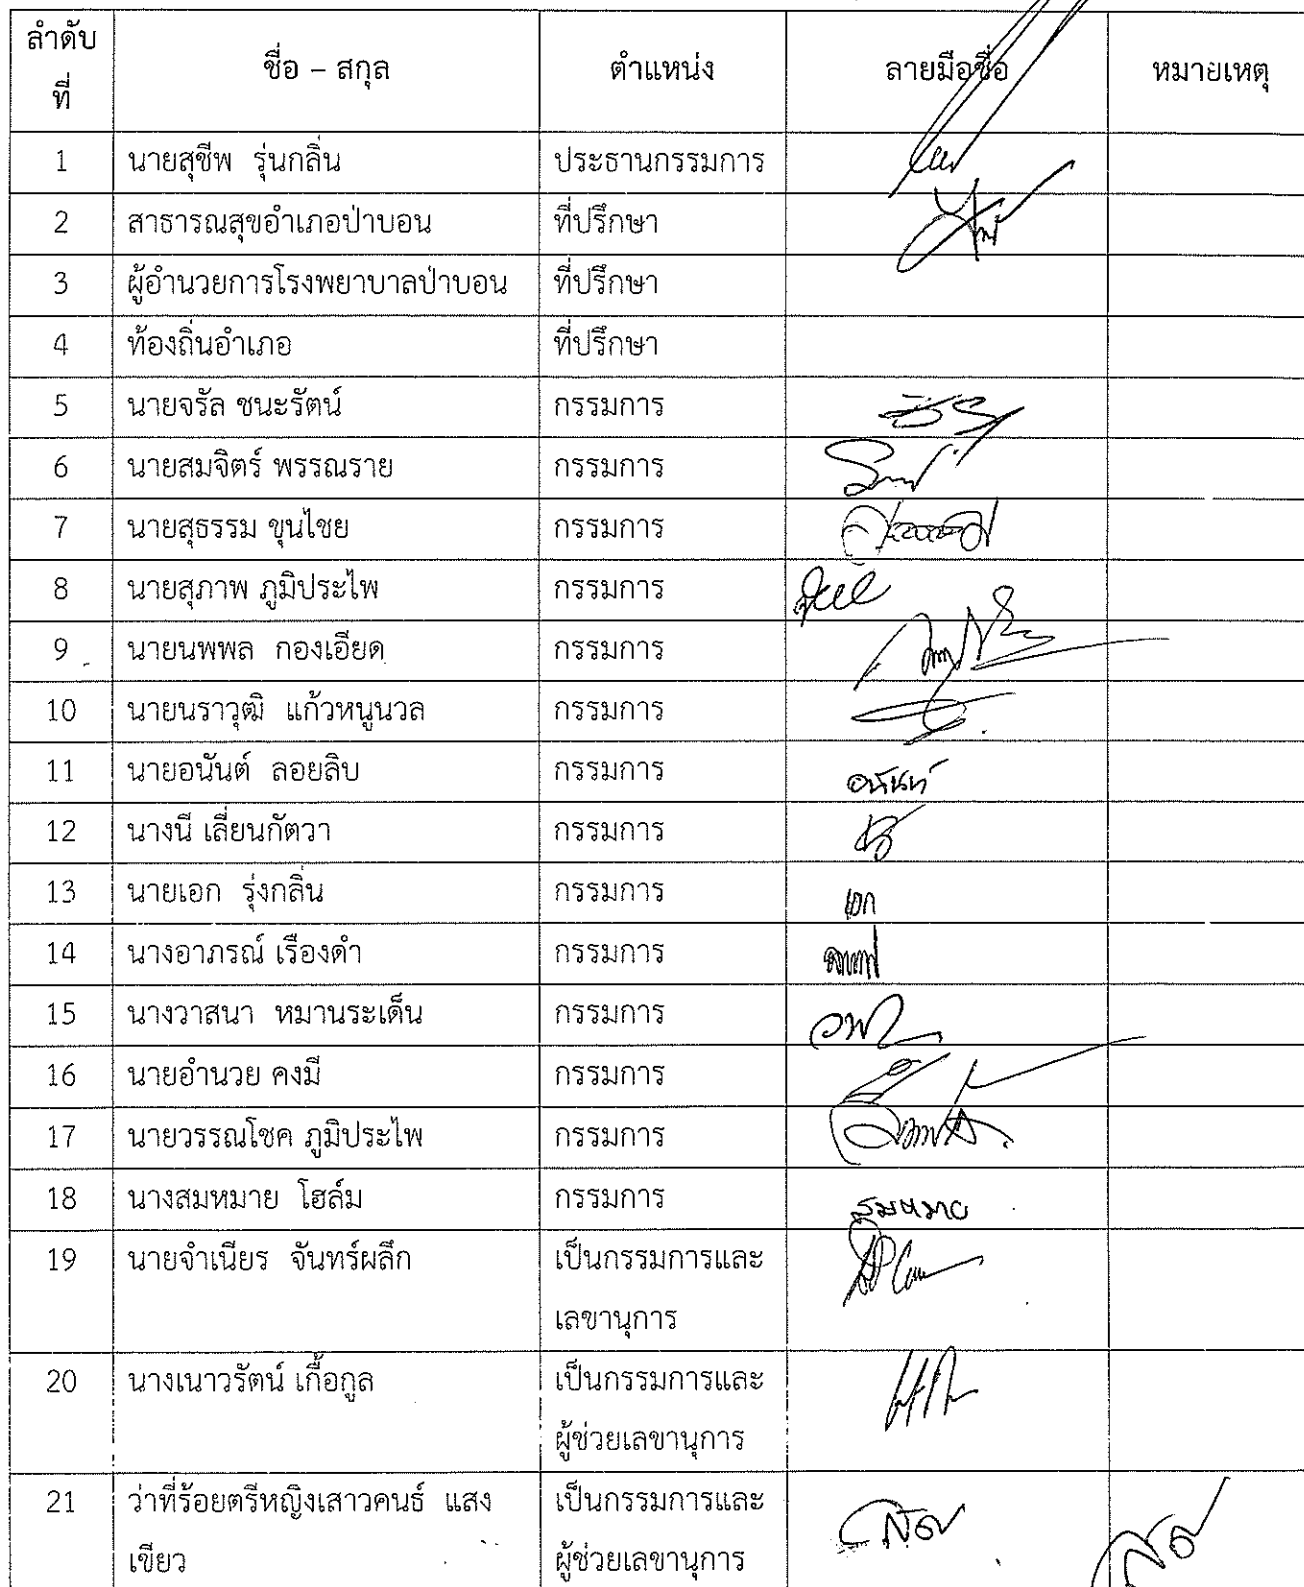 ลำดับที่ ชื่อ – สกุล ตำแหน่ง ลายมือชื่อ หมายเหตุ
1 นายสุชีพ รุ่นกลิ่น ประธานกรรมการ
2 สาธารณสุขอำเภอป่าบอน ที่ปรึกษา
3 ผู้อำนวยการโรงพยาบาลป่าบอน ที่ปรึกษา
4 ท้องถิ่นอำเภอ ที่ปรึกษา
5 นายจรัล ชนะรัตน์ กรรมการ
6 นายสมจิตร์ พรรณราย กรรมการ
7 นายสุธรรม ขุนไชย กรรมการ
8 นายสุภาพ ภูมิประไพ กรรมการ
9 นายนพพล กองเอียด กรรมการ
10 นายนราวุฒิ แก้วหนูนวล กรรมการ
11 นายอนันต์ ลอยลิบ กรรมการ อนันท์
12 นางนี เลี่ยนกัตวา กรรมการ
13 นายเอก รุ่งกลิ่น กรรมการ เอก
14 นางอาภรณ์ เรืองดำ กรรมการ
15 นางวาสนา หมานระเด็น กรรมการ
16 นายอำนวย คงมี กรรมการ
17 นายวรรณโชค ภูมิประไพ กรรมการ
18 นางสมหมาย โฮล์ม กรรมการ สมหมาย
19 นายจำเนียร จันทร์ผลึก เป็นกรรมการและ
เลขานุการ
20 นางเนาวรัตน์ เกื้อกูล เป็นกรรมการและ
ผู้ช่วยเลขานุการ
21 ว่าที่ร้อยตรีหญิงเสาวคนธ์ แสง เป็นกรรมการและ
เขียว ผู้ช่วยเลขานุการ